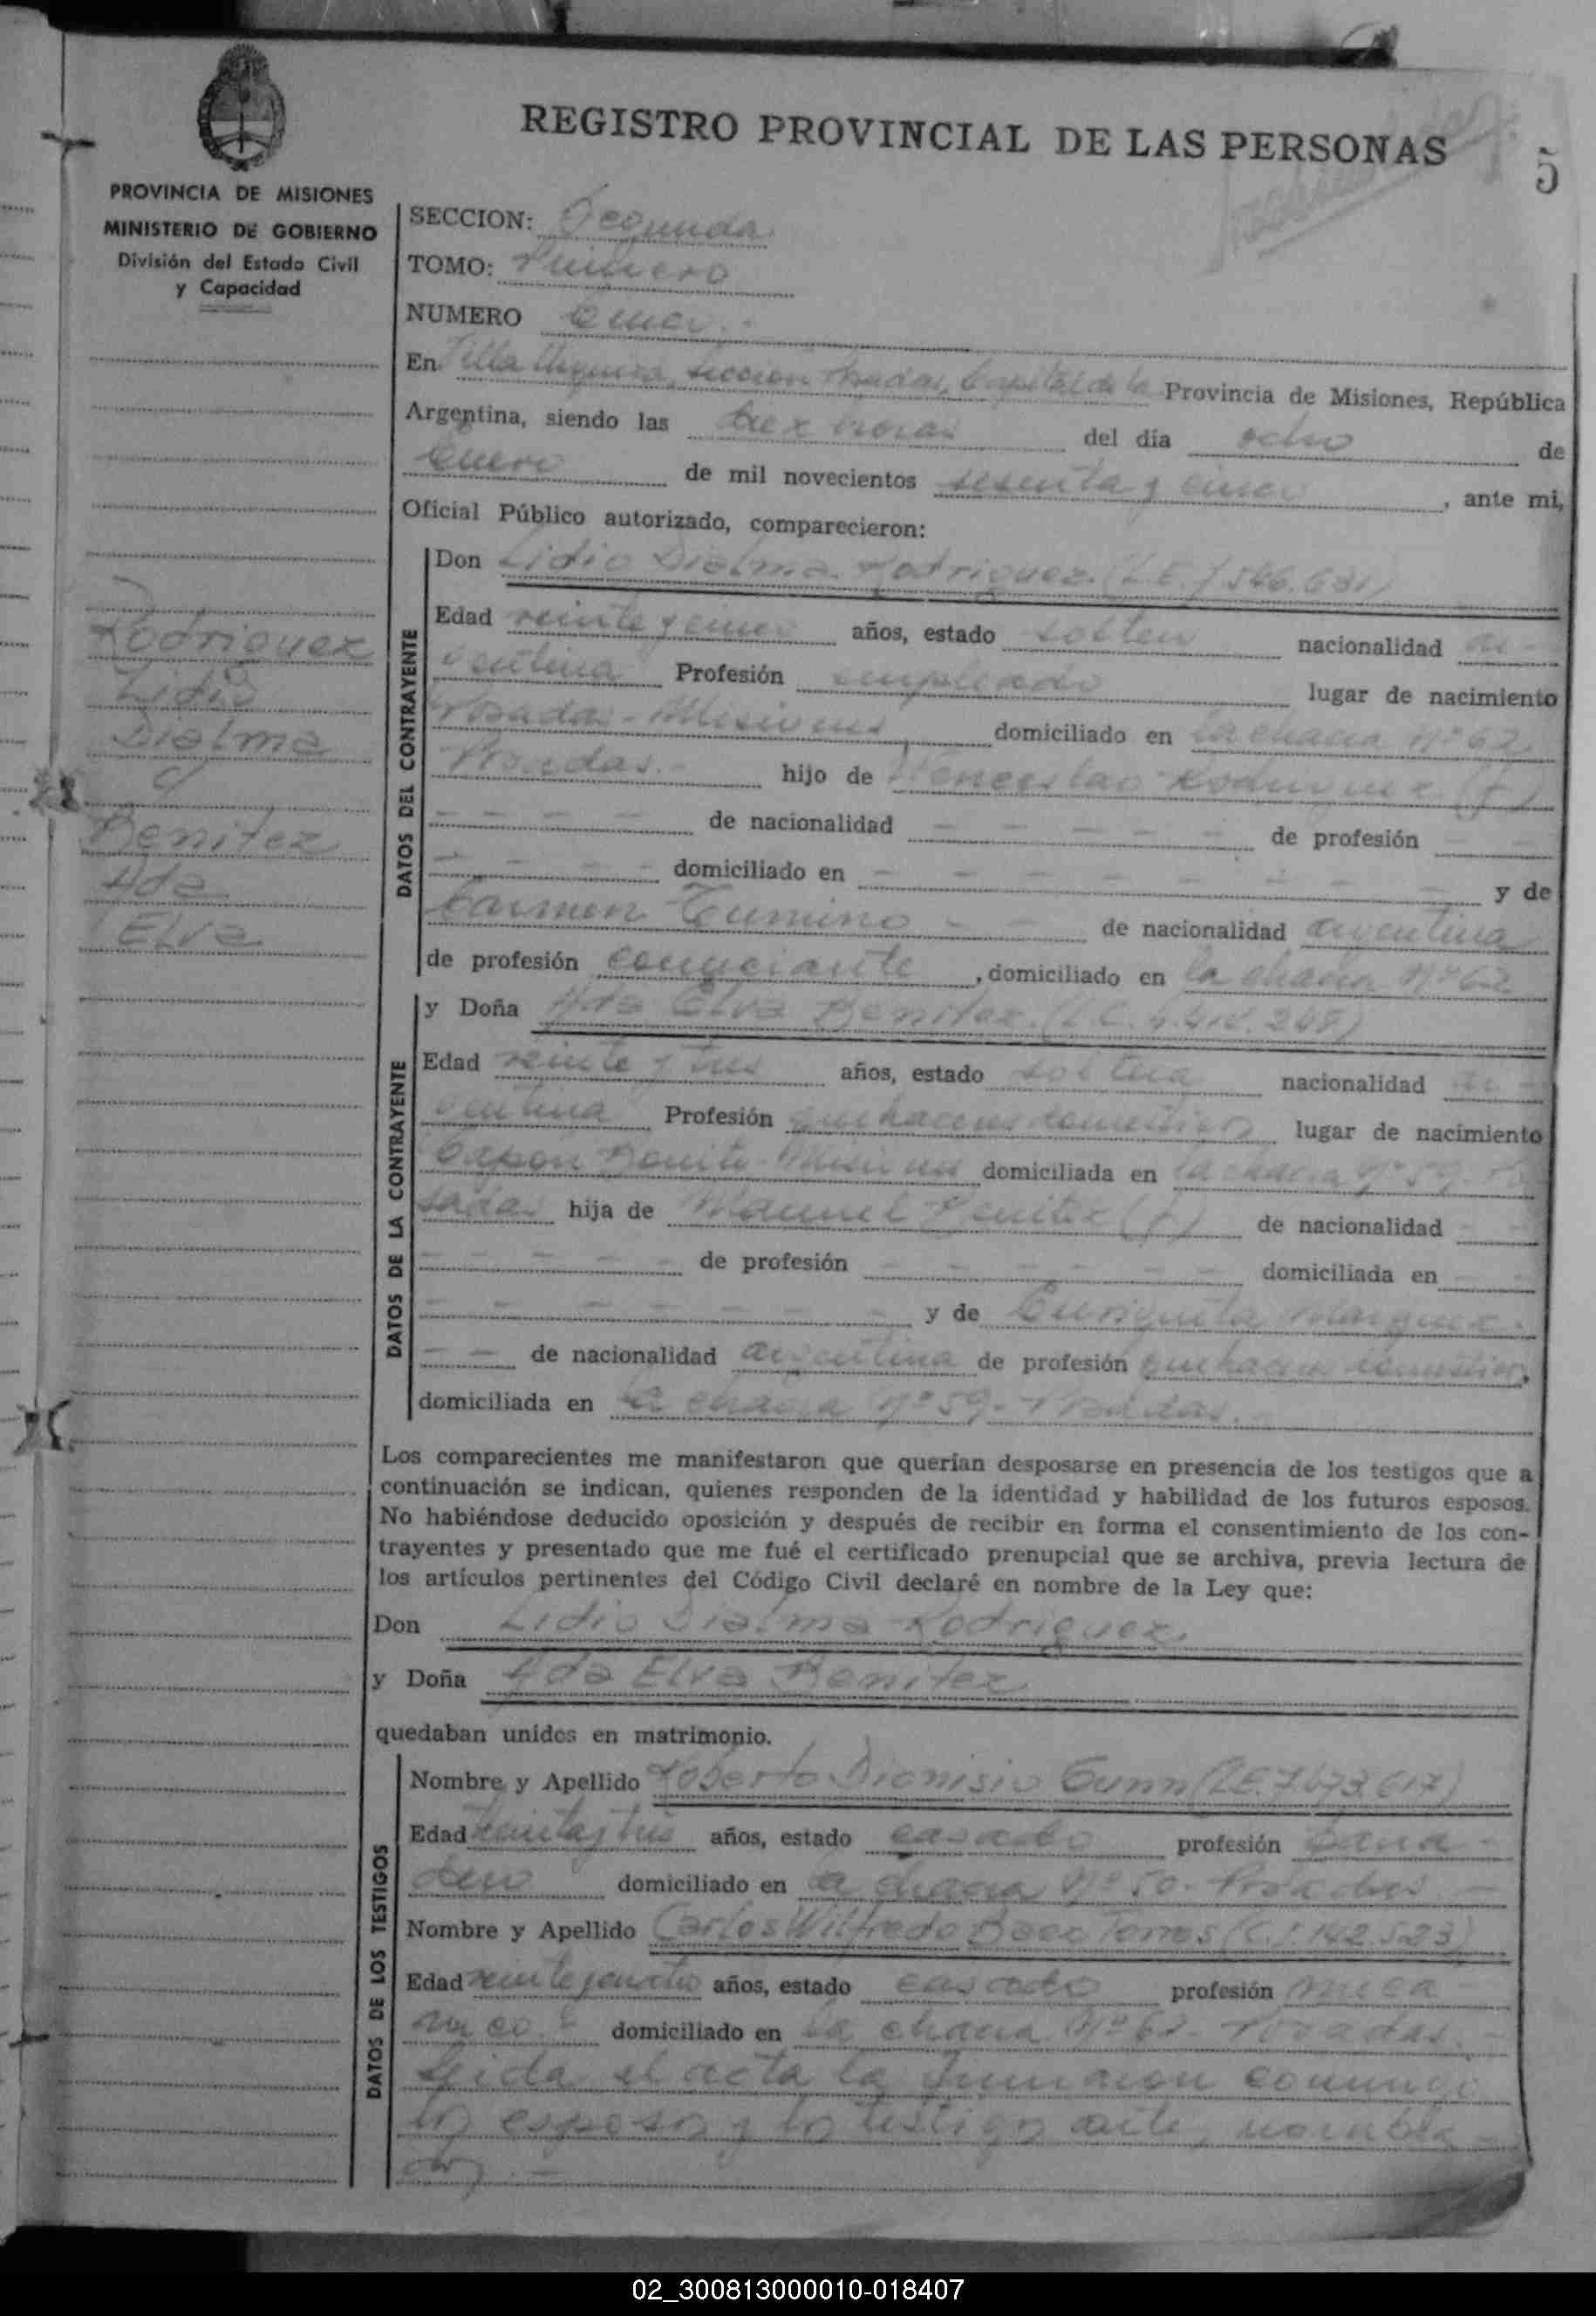 REGISTRO PROVINCIAL DE LAS PERSONAS
5
PROVINCIA DE MISIONES
MINISTERIO DE GOBIERNO
División del Estado Civil
y Capacidad
SECCION: Segunda
TOMO: Primero
NUMERO Cinco.-
En Villa Urquiza, Sección Posadas, Capital de la Provincia de Misiones, República
Argentina, siendo las diez horas del día ocho de
Enero de mil novecientos sesenta y cinco, ante mi,
Oficial Público autorizado, comparecieron:
Rodriguez
Lidio
Dielma
c/
Benitez
Ada
Elva
DATOS DEL CONTRAYENTE
Don Lidio Dielma Rodriguez. (L.E. 7.546.631)
Edad veinte y cinco años, estado soltero nacionalidad ar-
gentina Profesión empleado lugar de nacimiento
Posadas - Misiones domiciliado en la chacra Nº 62
Posadas.- hijo de Wenceslao Rodriguez (f)
- - - - de nacionalidad - - - - - - de profesión - -
- - - - domiciliado en - - - - - - - - y de
Carmen - - de nacionalidad argentina
de profesión comerciante, domiciliado en la chacra Nº 62
DATOS DE LA CONTRAYENTE
y Doña Ada Elva Benitez. (L.C.
Edad veinte y tres años, estado soltera nacionalidad ar-
gentina Profesión quehaceres domésticos lugar de nacimiento
Capón Bonito - Misiones domiciliada en la chacra Nº 59 - Po-
sadas hija de Manuel Benitez (f) de nacionalidad - -
- - - - - - de profesión - - - - - - domiciliada en - -
- - - - - - - - y de Enriqueta Marquez.
- - de nacionalidad argentina de profesión quehaceres domésticos,
domiciliada en la chacra Nº 59 - Posadas.
Los comparecientes me manifestaron que querían desposarse en presencia de los testigos que a
continuación se indican, quienes responden de la identidad y habilidad de los futuros esposos.
No habiéndose deducido oposición y después de recibir en forma el consentimiento de los con-
trayentes y presentado que me fué el certificado prenupcial que se archiva, previa lectura de
los artículos pertinentes del Código Civil declaré en nombre de la Ley que:
Don Lidio Dielma Rodriguez
y Doña Ada Elva Benitez
quedaban unidos en matrimonio.
DATOS DE LOS TESTIGOS
Nombre y Apellido Roberto Dionisio Gunn (L.E. 7.473.617)
Edad treinta y tres años, estado casado profesión gana-
dero domiciliado en la chacra Nº 50 - Posadas -
Nombre y Apellido Carlos Wilfredo Baez Torres (C.I. 142.523)
Edad veinte y cuatro años, estado casado profesión mecá-
nico.- domiciliado en la chacra Nº Posadas.-
Leida el acta la firmaron conmigo
los esposos y los testigos ante, nombra-
dos.-
02_300813000010-018407